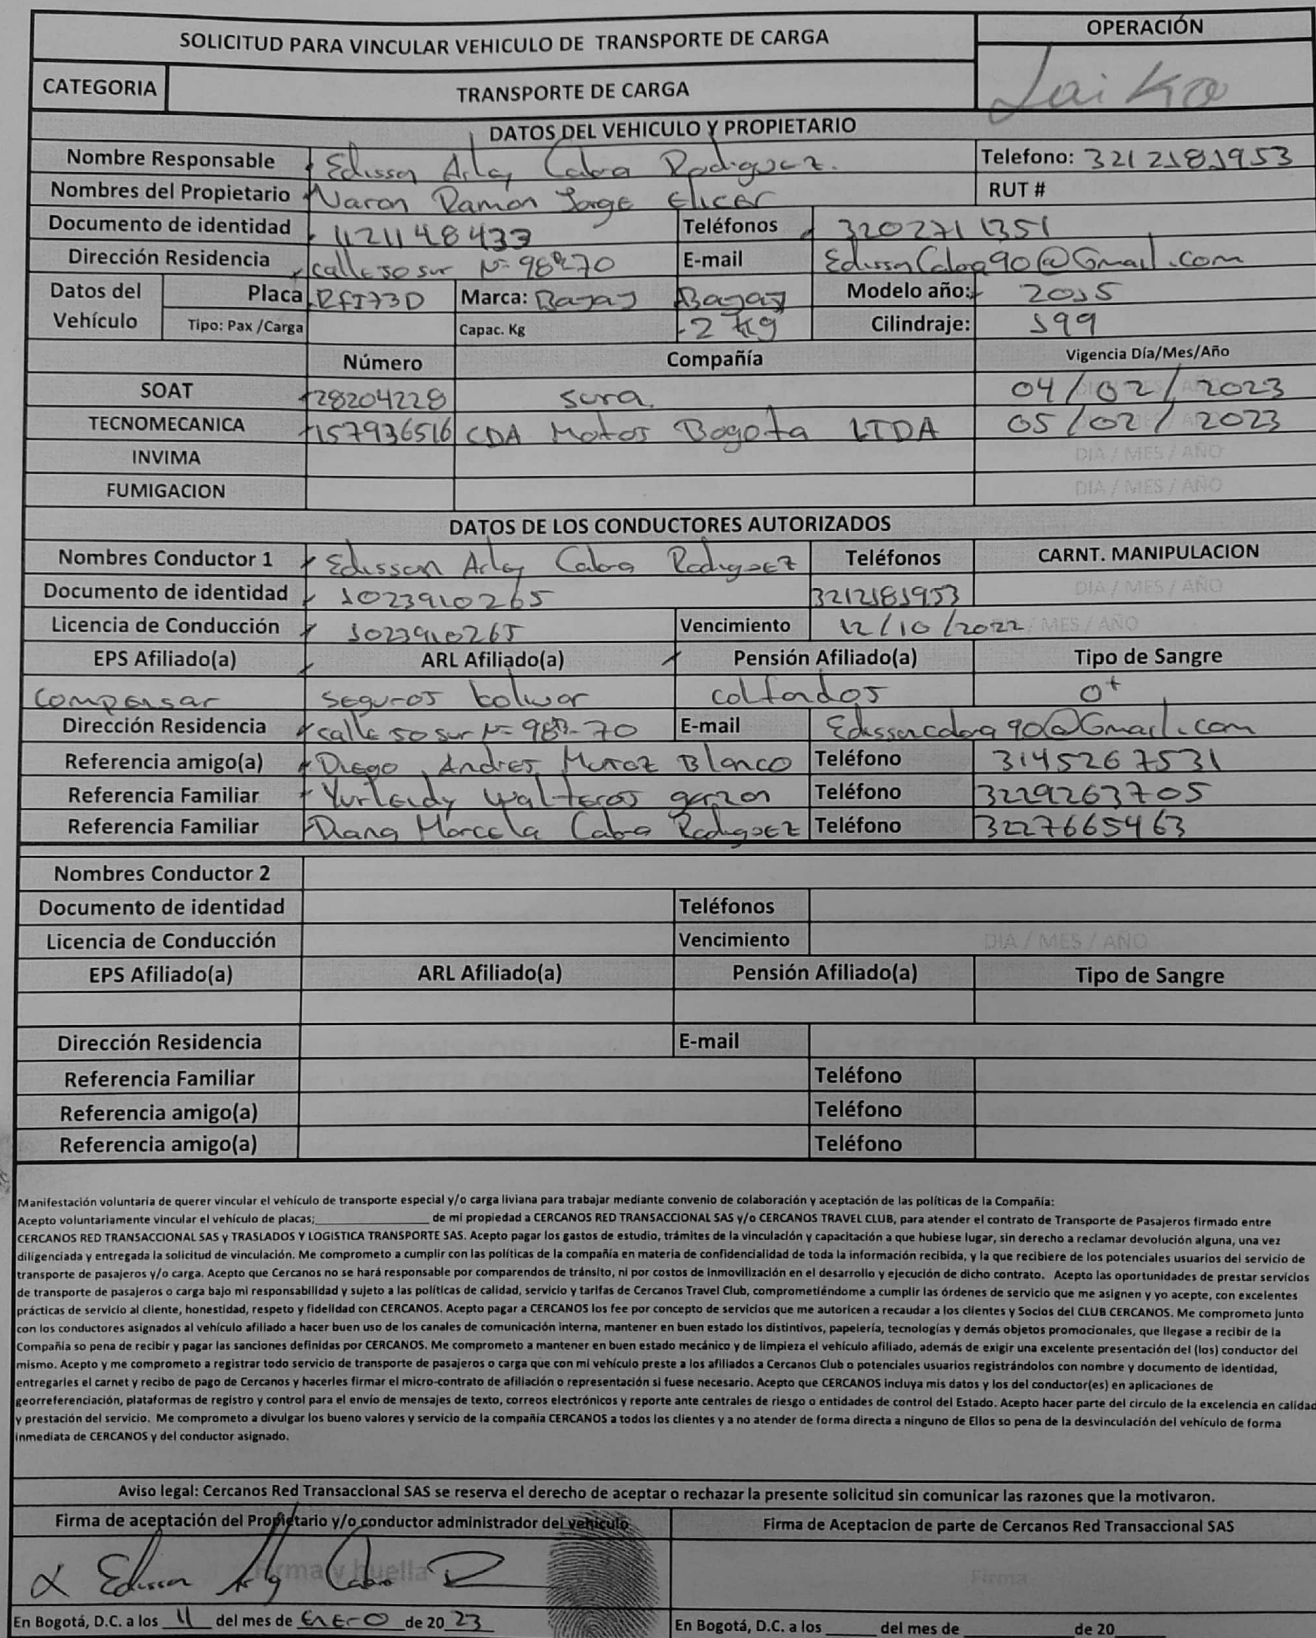 SOLICITUD PARA VINCULAR VEHICULO DE TRANSPORTE DE CARGA
OPERACIÓN
CATEGORIA
TRANSPORTE DE CARGA
Laika
DATOS DEL VEHICULO Y PROPIETARIO
Nombre Responsable Edisson Arley Cabra Rodriguez. Telefono: 3212181953
Nombres del Propietario Naron Ramon Jorge Elicer RUT #
Documento de identidad 1121148433 Teléfonos 3202711351
Dirección Residencia calle 50 sur N= 98B-70 E-mail EdissonCabra90@Gmail.com
Datos del Vehículo Placa RFI73D Marca: Bajaj Bajaj Modelo año: 2015
Tipo: Pax /Carga Capac. Kg -2 kg Cilindraje: 199
Número Compañía Vigencia Día/Mes/Año
SOAT 28204228 sura. 04/02/2023
TECNOMECANICA 157936516 CDA Motos Bogota LTDA 05/02/2023
INVIMA DIA / MES / AÑO
FUMIGACION DIA / MES / AÑO
DATOS DE LOS CONDUCTORES AUTORIZADOS
Nombres Conductor 1 Edisson Arley Cabra Rodriguez Teléfonos CARNT. MANIPULACION
Documento de identidad 1023910265 3212181953 DIA / MES / AÑO
Licencia de Conducción 1023910265 Vencimiento 12/10/2022 / MES / AÑO
EPS Afiliado(a) ARL Afiliado(a) Pensión Afiliado(a) Tipo de Sangre
compensar seguros bolivar colfondos O+
Dirección Residencia calle 50 sur N= 98B-70 E-mail Edissoncabra90@Gmail.com
Referencia amigo(a) Diego Andres Muñoz Blanco Teléfono 3145267531
Referencia Familiar Yurleidy Walteros garzon Teléfono 3229263705
Referencia Familiar Diana Marcela Cabra Rodriguez Teléfono 3227665463
Nombres Conductor 2
Documento de identidad Teléfonos
Licencia de Conducción Vencimiento DIA / MES / AÑO
EPS Afiliado(a) ARL Afiliado(a) Pensión Afiliado(a) Tipo de Sangre
Dirección Residencia E-mail
Referencia Familiar Teléfono
Referencia amigo(a) Teléfono
Referencia amigo(a) Teléfono
Manifestación voluntaria de querer vincular el vehículo de transporte especial y/o carga liviana para trabajar mediante convenio de colaboración y aceptación de las políticas de la Compañía:
Acepto voluntariamente vincular el vehículo de placas;____________________ de mi propiedad a CERCANOS RED TRANSACCIONAL SAS y/o CERCANOS TRAVEL CLUB, para atender el contrato de Transporte de Pasajeros firmado entre
CERCANOS RED TRANSACCIONAL SAS y TRASLADOS Y LOGISTICA TRANSPORTE SAS. Acepto pagar los gastos de estudio, trámites de la vinculación y capacitación a que hubiese lugar, sin derecho a reclamar devolución alguna, una vez
diligenciada y entregada la solicitud de vinculación. Me comprometo a cumplir con las políticas de la compañía en materia de confidencialidad de toda la información recibida, y la que recibiere de los potenciales usuarios del servicio de
transporte de pasajeros y/o carga. Acepto que Cercanos no se hará responsable por comparendos de tránsito, ni por costos de inmovilización en el desarrollo y ejecución de dicho contrato. Acepto las oportunidades de prestar servicios
de transporte de pasajeros o carga bajo mi responsabilidad y sujeto a las políticas de calidad, servicio y tarifas de Cercanos Travel Club, comprometiéndome a cumplir las órdenes de servicio que me asignen y yo acepte, con excelentes
prácticas de servicio al cliente, honestidad, respeto y fidelidad con CERCANOS. Acepto pagar a CERCANOS los fee por concepto de servicios que me autoricen a recaudar a los clientes y Socios del CLUB CERCANOS. Me comprometo junto
con los conductores asignados al vehículo afiliado a hacer buen uso de los canales de comunicación interna, mantener en buen estado los distintivos, papelería, tecnologías y demás objetos promocionales, que llegase a recibir de la
Compañía so pena de recibir y pagar las sanciones definidas por CERCANOS. Me comprometo a mantener en buen estado mecánico y de limpieza el vehículo afiliado, además de exigir una excelente presentación del (los) conductor del
mismo. Acepto y me comprometo a registrar todo servicio de transporte de pasajeros o carga que con mi vehículo preste a los afiliados a Cercanos Club o potenciales usuarios registrándolos con nombre y documento de identidad,
entregarles el carnet y recibo de pago de Cercanos y hacerles firmar el micro-contrato de afiliación o representación si fuese necesario. Acepto que CERCANOS incluya mis datos y los del conductor(es) en aplicaciones de
georreferenciación, plataformas de registro y control para el envío de mensajes de texto, correos electrónicos y reporte ante centrales de riesgo o entidades de control del Estado. Acepto hacer parte del circulo de la excelencia en calidad
y prestación del servicio. Me comprometo a divulgar los bueno valores y servicio de la compañía CERCANOS a todos los clientes y a no atender de forma directa a ninguno de Ellos so pena de la desvinculación del vehículo de forma
inmediata de CERCANOS y del conductor asignado.
Aviso legal: Cercanos Red Transaccional SAS se reserva el derecho de aceptar o rechazar la presente solicitud sin comunicar las razones que la motivaron.
Firma de aceptación del Propietario y/o conductor administrador del vehículo Firma de Aceptacion de parte de Cercanos Red Transaccional SAS
Firma y huella Firma
Edisson Arley Cabra R
En Bogotá, D.C. a los 11 del mes de ENERO de 20 23 En Bogotá, D.C. a los ______ del mes de ____________ de 20______